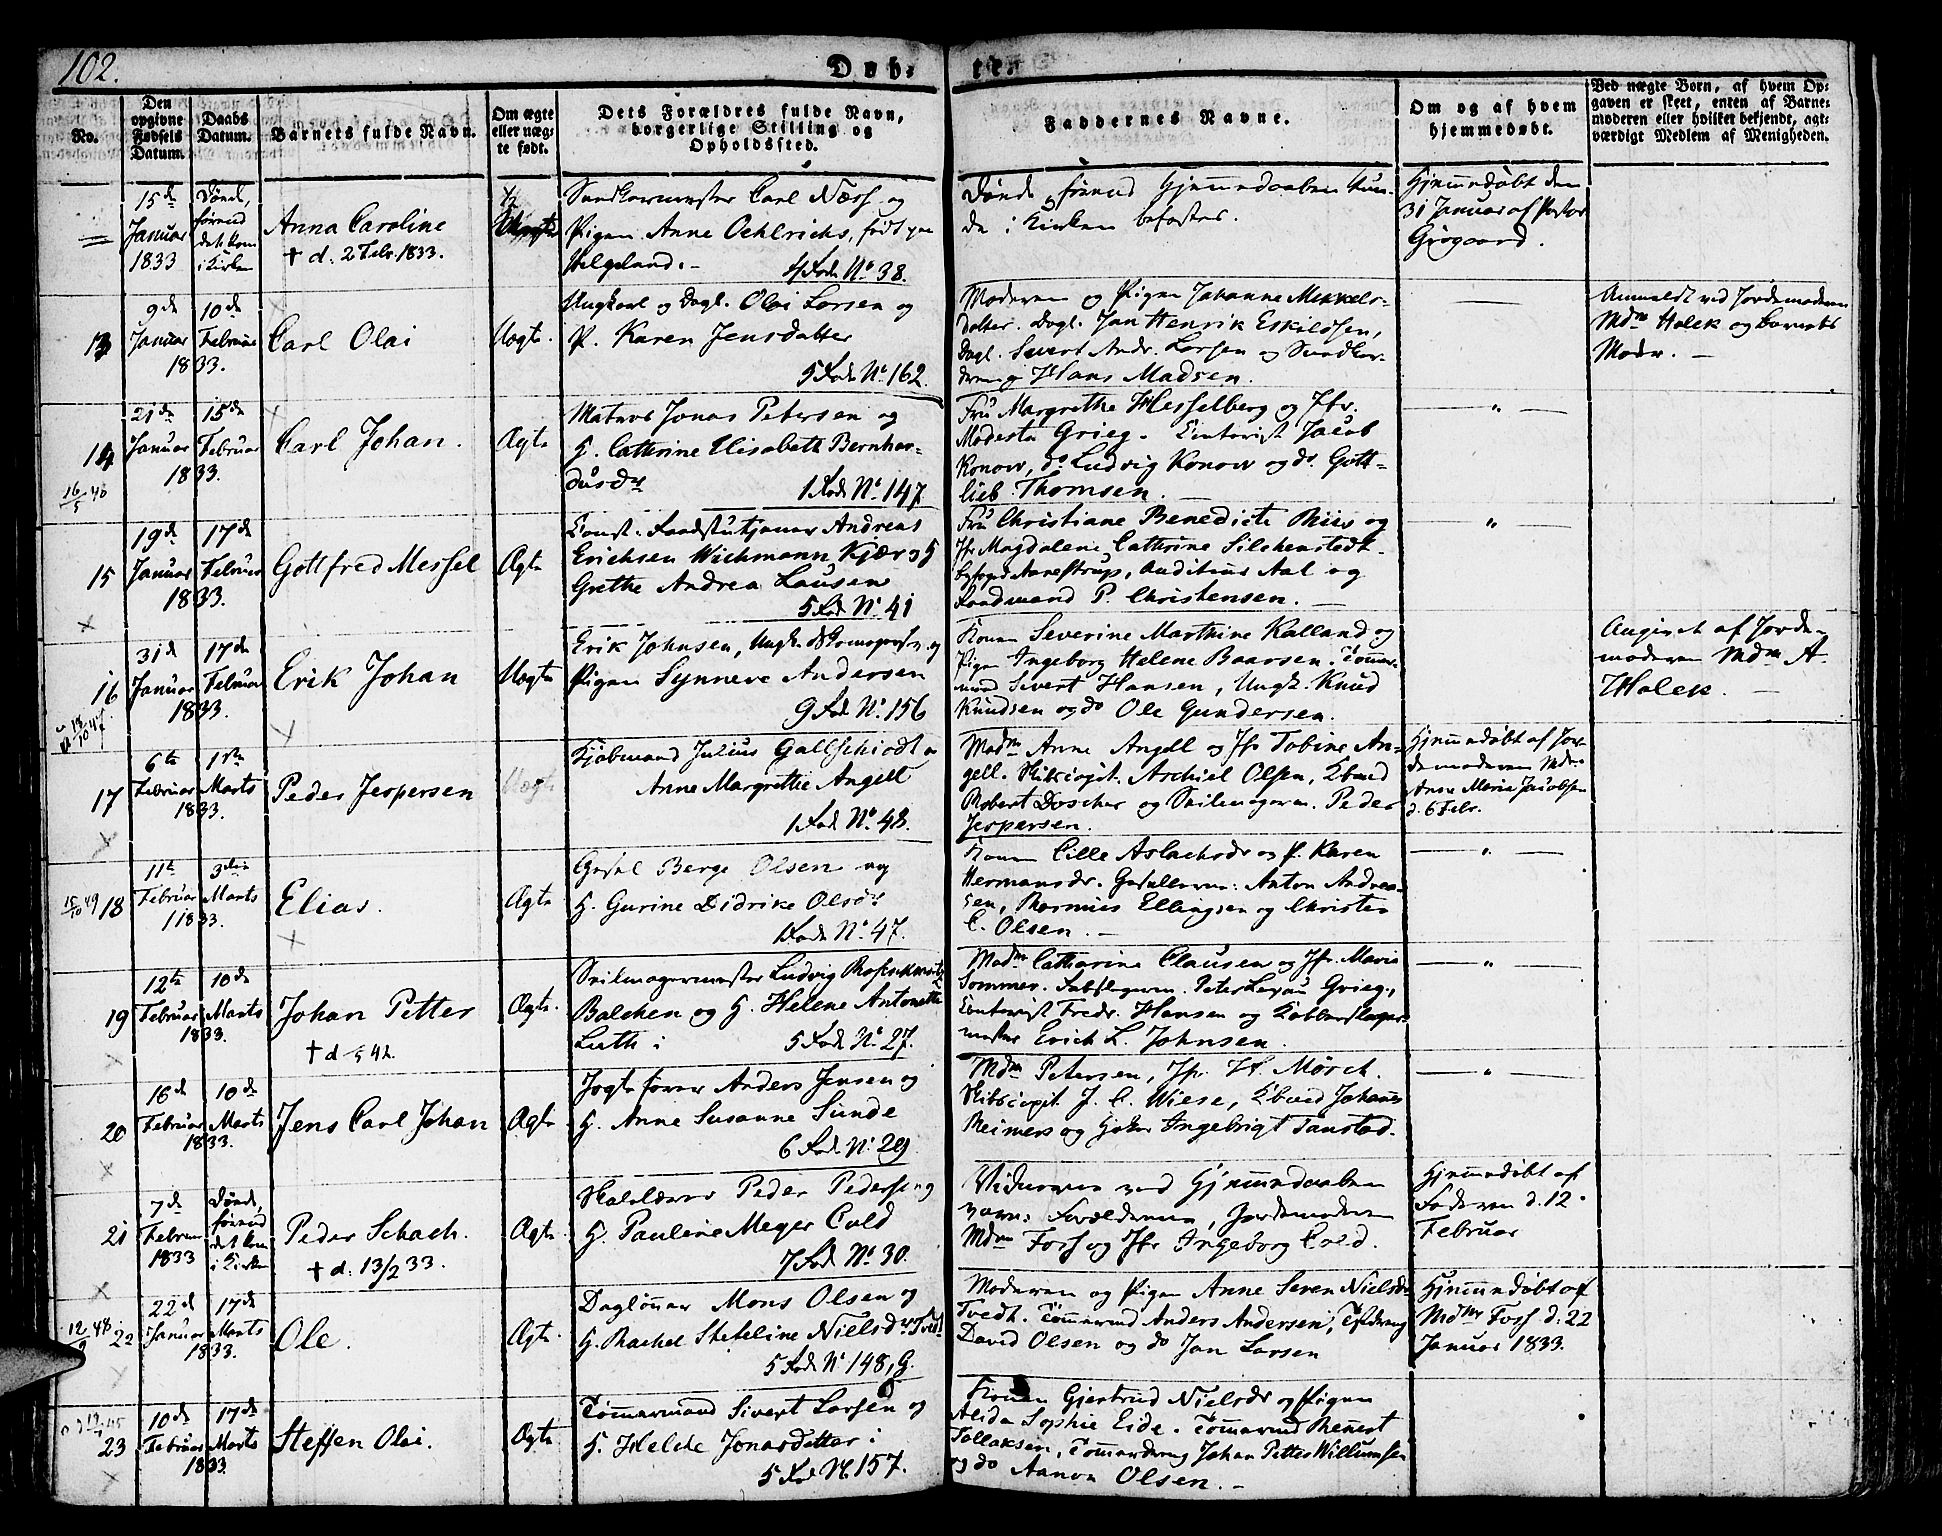 102.
Døb-
te.
No.
Den opgivne Fødsels Datum.
Daabs Datum.
Barnets fulde Navn.
Om ægte eller uægte født.
Dets Forældres fulde Navn, borgerlige Stilling og Opholdssted.
Faddernes Navne.
Om og af hvem hjemmedøbt.
Ved uægte Børn, af hvem Opgaven er skeet, enten af Barnemoderen eller hvilket bekjendt, agtværdigt Medlem af Menigheden.
15de Januar 1833
Døde, førend det kom i Kirken
Anna Caroline
† d. 2 Febr. 1833.
Carl Næss og
Pigen Anne Oehlrichs, født paa
Helgeland.
4 Rode No. 38.
Døde førend Hjemmedaaben kun-
de i Kirken befæstes.
Hjemmedøbt den
31 Januar af Pastor
Grøgaard.
13
9de Januar 1833.
10de Februar
Carl Olai
Uægte.
Ungkarl og Dagl. Olai Larsen og
P. Karen Jensdatter
5 Rode No. 162.
Moderen og Pigen Johanne Mikkels-
datter. Dagl. Jan Henrik Eskildsen,
Dagl. Sivert Andr. Larsen og
Hans Madsen.
Anmeldt ved Jordemoderen
Mdm Holck og Barnets
Moder. —
14
16/5 40
21de Januar 1833.
15de Februar
Carl Johan.
Ægte
Matros Jonas Petersen og
H. Cathrine Elisabeth Bernhar-
dusdr
1 Rode No. 147.
Fru Margrethe Hesselberg og Jfr.
Modesta Grieg. Contorist Jacob
Konow, do Ludvig Konow og do. Gott-
lieb Thomsen.
15
19de Januar 1833.
17de Februar
Gottfred Messel
Ægte
Const. Raadstutjener Andreas
Erichsen Wichmann Kjær og H
Grethe Andrea Lausen
5 Rode No. 41
Fru Christiane Benedicte Riis og
Jfr Magdalene Cathrine Silchenstedt.
Aarestrup, Auditeur Aal og
P. Christensen.
16
18/10 47
31de Januar 1833.
17de Februar
Erik Johan
Uægte
Erik Johnsen, Ungk. og
Pigen Synneve Andersen
9 Rode No. 156
Konen Severine Marthine Kalland og
Pigen Ingeborg Helene Baarsen. Tømmer-
mand Sivert Hansen, Ungk. Knud
Knudsen og do Ole Gundersen.
Angivet af Jorde-
moderen Mdm A.
Holck. —
17
6te Februar 1833.
1ste Marts
Peder Jespersen
Uægte
Kjøbmand Julius Gallschiødt og
Anne Margrethe Angell
1 Rode No. 48.
Madm Anne Angell og Jfr Tobine An-
gell. Skibscapit. Aschiel Olsen, Kbmd
Robert Döscher og Seilmageren Peder
Jespersen.
Hjemmedøbt af Jor-
demoderen Mdm
Anne Marie Jacobsen
d. 6 Febr.
18
15/10 49
11te Februar 1833.
3die Marts
Elias.
Ægte
Gesel Berge Olsen og
H. Gurine Didrike Olsdr
1 Rode No. 47.
Konen Cille Aslachsdr og P. Karen
Hermansdr. Gesellerne: Anton Andrea-
sen, Rasmus Ellingsen og Christen
C. Olsen. —
19
12te Februar 1833.
10de Marts
Johan Petter
† d 5/ 42.
Ægte.
Seilmagermester Ludvig Rosenkrantz
Balchen og H. Helene Antonette
Luth
5 Rode No. 27.
Madm Catharine Clausen og Jfr. Marie
Sommer. Rebslageren Peter Legau Grieg,
Contorist Fredr. Hansen og Kobberslager-
mester Erich L. Johnsen.
20
16de Februar 1833.
10de Marts
Jens Carl Johan
Ægte
Jægtefører Anders Jensen og
H. Anne Susanne Sunde
6 Rode No. 29.
Mdm Petersen, Jfr H. Mørch.
Skibscapit. J. C. Wiese, Kbmd Johannes
Reimers og Ingebrigt Tanstad.
21
7de Februar 1833
Døde, førend det kom i Kirken
Peder Schach.
† d. 13/2 33.
Ægte.
Peder Pedersen og
H. Pauline Meyer Cold
7 Rode No. 30.
Vidnerne ved Hjemmedaaben
vare: Forældrene, Jordemoderen
Mdm Foss og Jfr Ingeborg Cold.
Hjemmedøbt af
Faderen d. 12.
Februar
22
12/9 48
22de Januar 1833.
17de Marts
Ole.
Ægte.
Dagløner Mons Olsen og
H. Rachel Steteline Nielsdr Tvedt
5 Rode No 148, G.
Moderen og Pigen Anne Seren Nielsdr
Tvedt. Tømmermd Anders Andersen,
David Olsen og do Jan Larsen
Hjemmedøbt af
Mdme Foss d. 22
Januar 1833.
23
10de Februar 1833.
17de Marts
Steffen Olai.
Ægte
Tømmermand Sivert Larsen og
H. Helde Jonasdatter
5 Rod No. 157.
Konen Gjertrud Nielsdr og Pigen
Alida Sophie Eide. Tømmermd Reinert
Tollaksen, Johan Petter Willumsen
og do Aanon Olsen. —